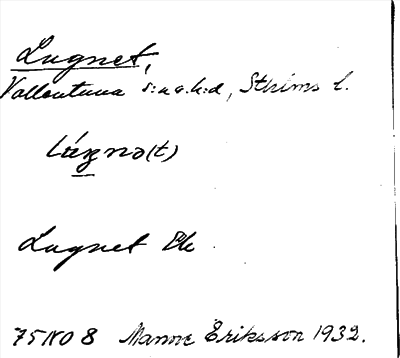 Lugnet,
Vallentuna s:n o. h:d, Sthlms l.
Lugnet
75 NO 8 Manne Eriksson 1932.